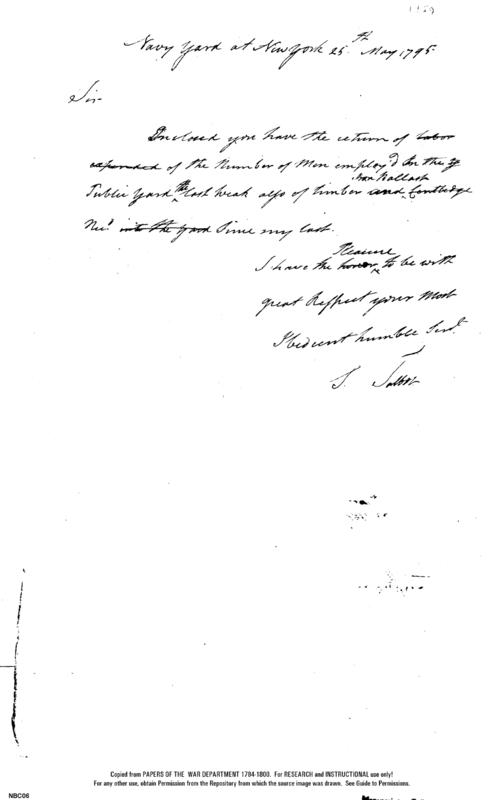 Navy Yard at New York 25th May 1795
Sir
Inclosed you have the return of labor
expended of the Number of Men employ'd in the
Iron Ballast
Public Yard the last weak also of timber and Kentledge
into the yard Since my last.
Pleasure
I have the honor to be with
great Respect your Most
Obedient humble Servt
S. Talbot
Copied from PAPERS OF THE WAR DEPARTMENT 1784-1800. For RESEARCH and INSTRUCTIONAL use only!
For any other use, obtain Permission from the Repository from which the source image was drawn. See Guide to Permissions.
NBC06